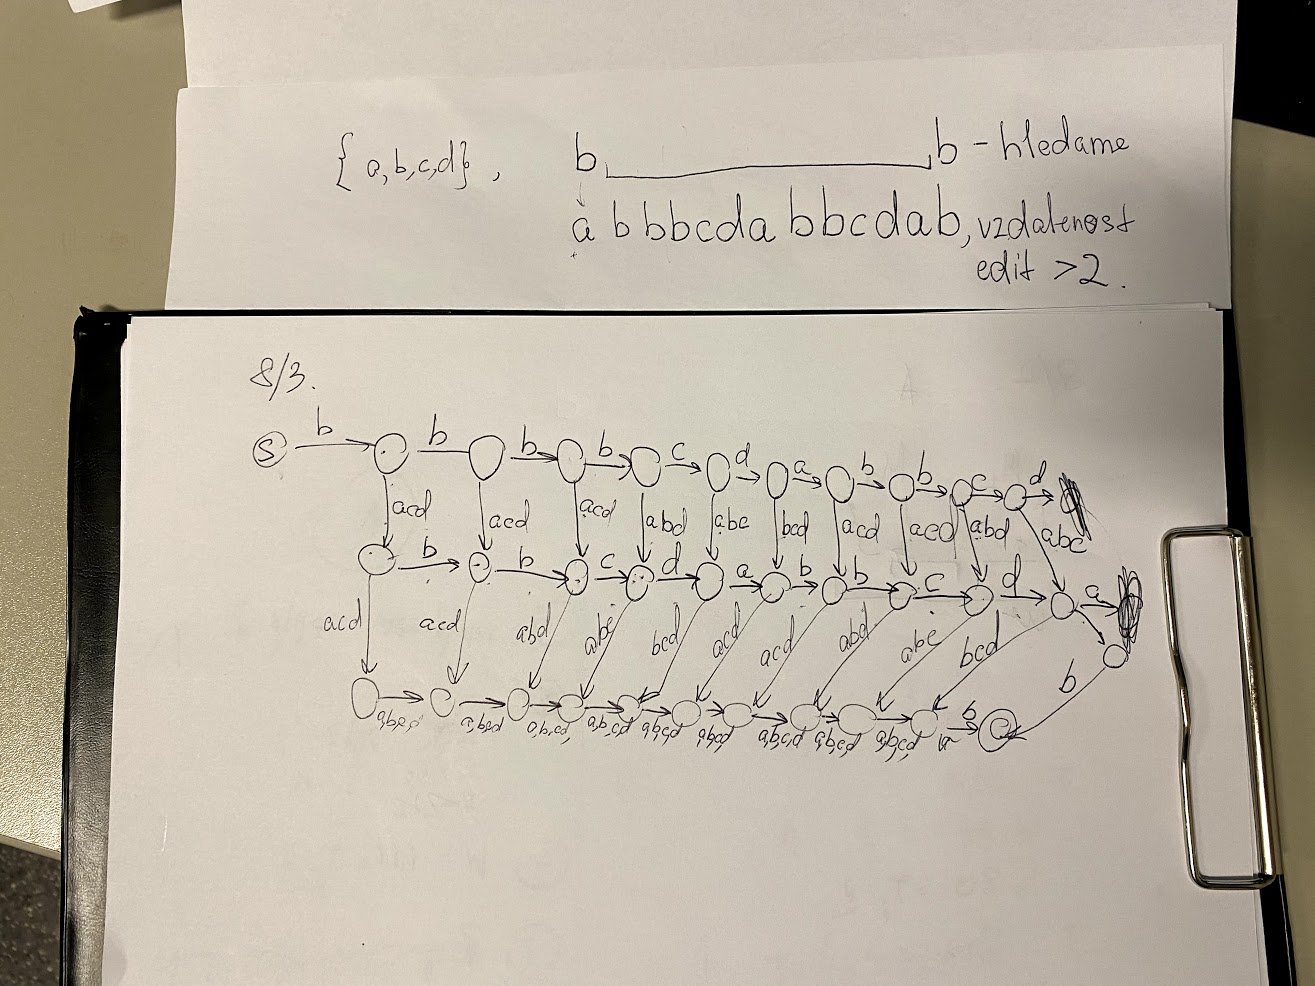 {a,b,c,d}, b b - hledame
a b b b c d a b b c d a b, vzdalenost
edit >2.
8/3.
S b b b b c d a b b c d
acd acd acd abd abc bcd acd acd abd abc
b b c d a b b c d a
acd acd abd abc bcd acd acd abd abc bcd b
a,b,c,d a,b,c,d a,b,c,d a,b,c,d a,b,c,d a,b,c,d a,b,c,d a,b,c,d a,b,c,d b